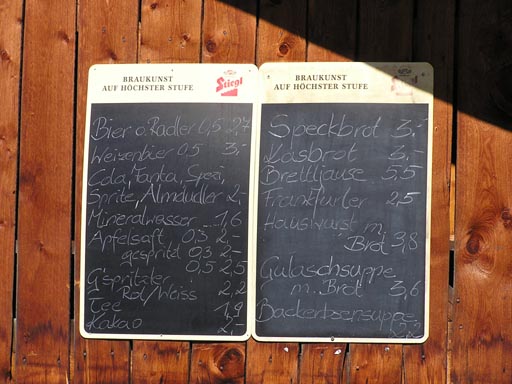 BRAUKUNST
AUF HÖCHSTER STUFE
Stiegl
Bier o. Radler 0,5 2,7
Weizenbier 0,5 3,-
Cola, Fanta, Spezi,
Sprite, Almdudler 2,-
Mineralwasser 1,6
Apfelsaft 0,3 2,-
gespritzt 0,3 2,-
0,5 2,5
G'spritzter
Rot/Weiss 2,2
Tee 1,9
Kakao 2,-
BRAUKUNST
AUF HÖCHSTER STUFE
Speckbrot 3,-
Käsbrot 3,-
Brettljause 5,5
Frankfurter 2,5
Hauswurst m.
Brot 3,8
Gulaschsuppe
m. Brot 3,6
Backerbsensuppe